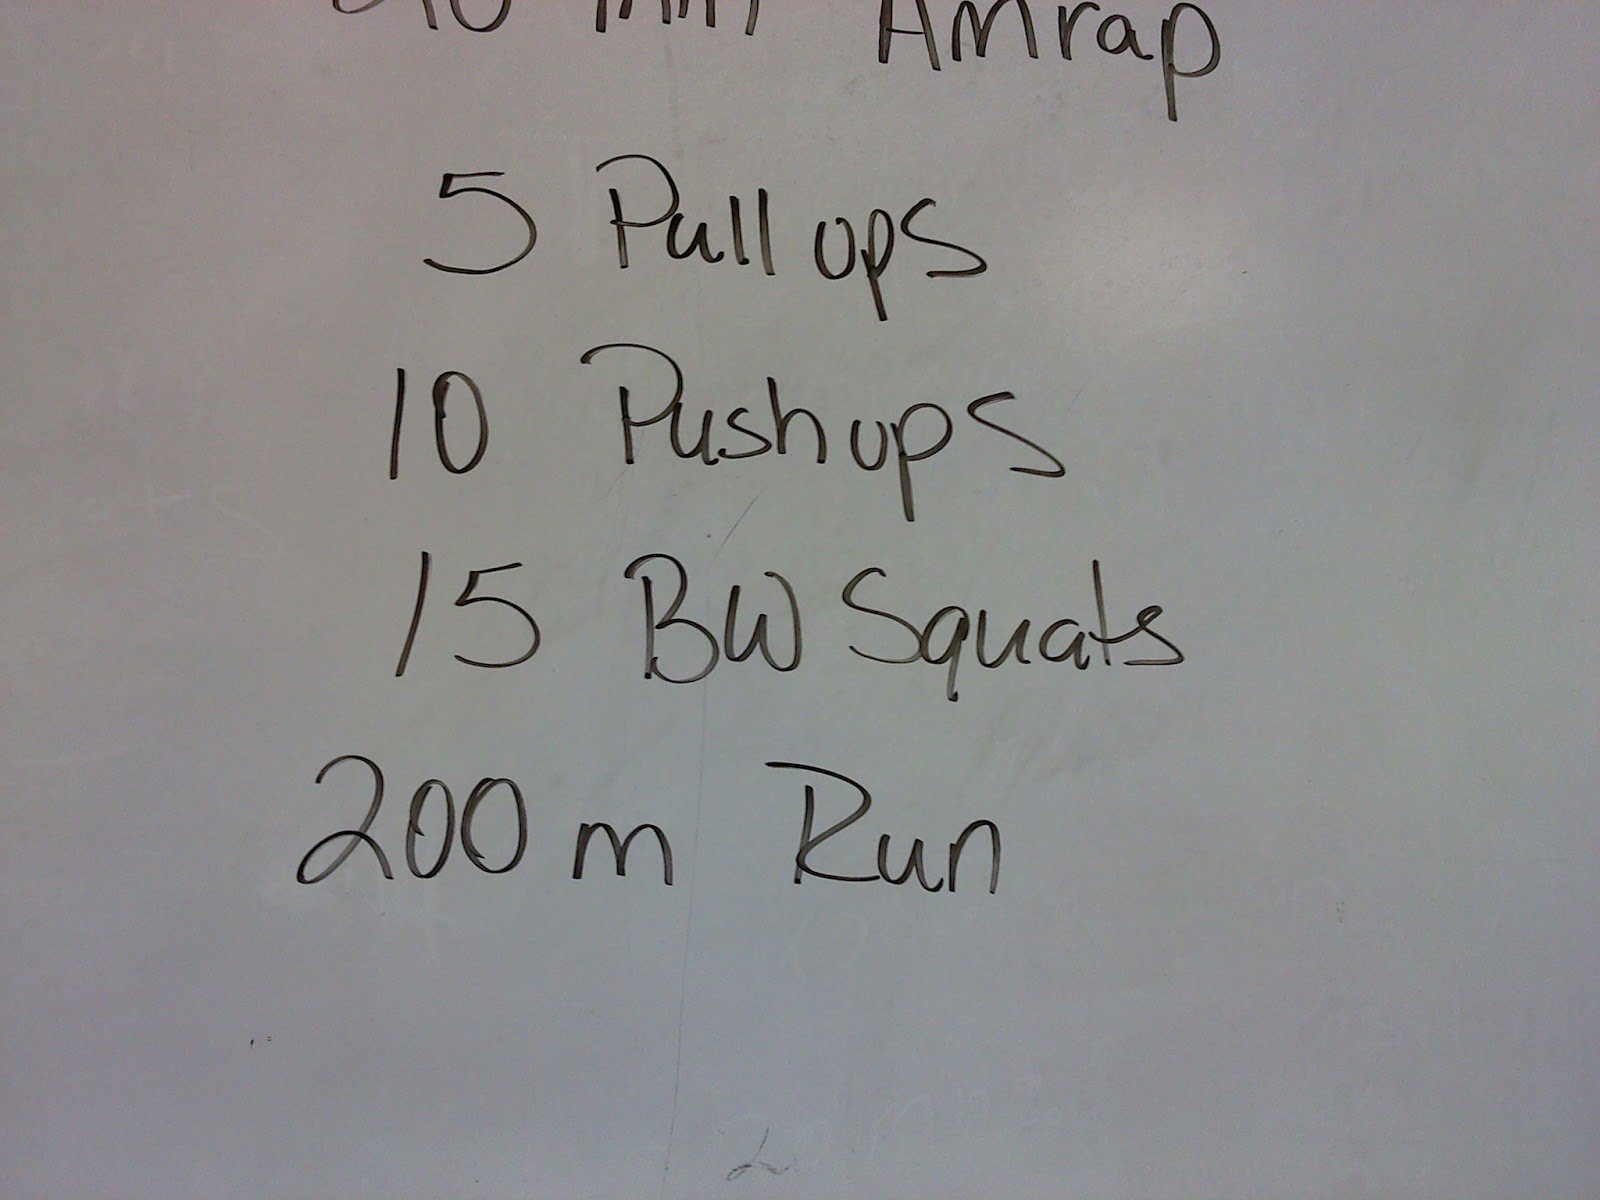 min Amrap
5 Pull ups
10 Push ups
15 BW Squats
200 m Run